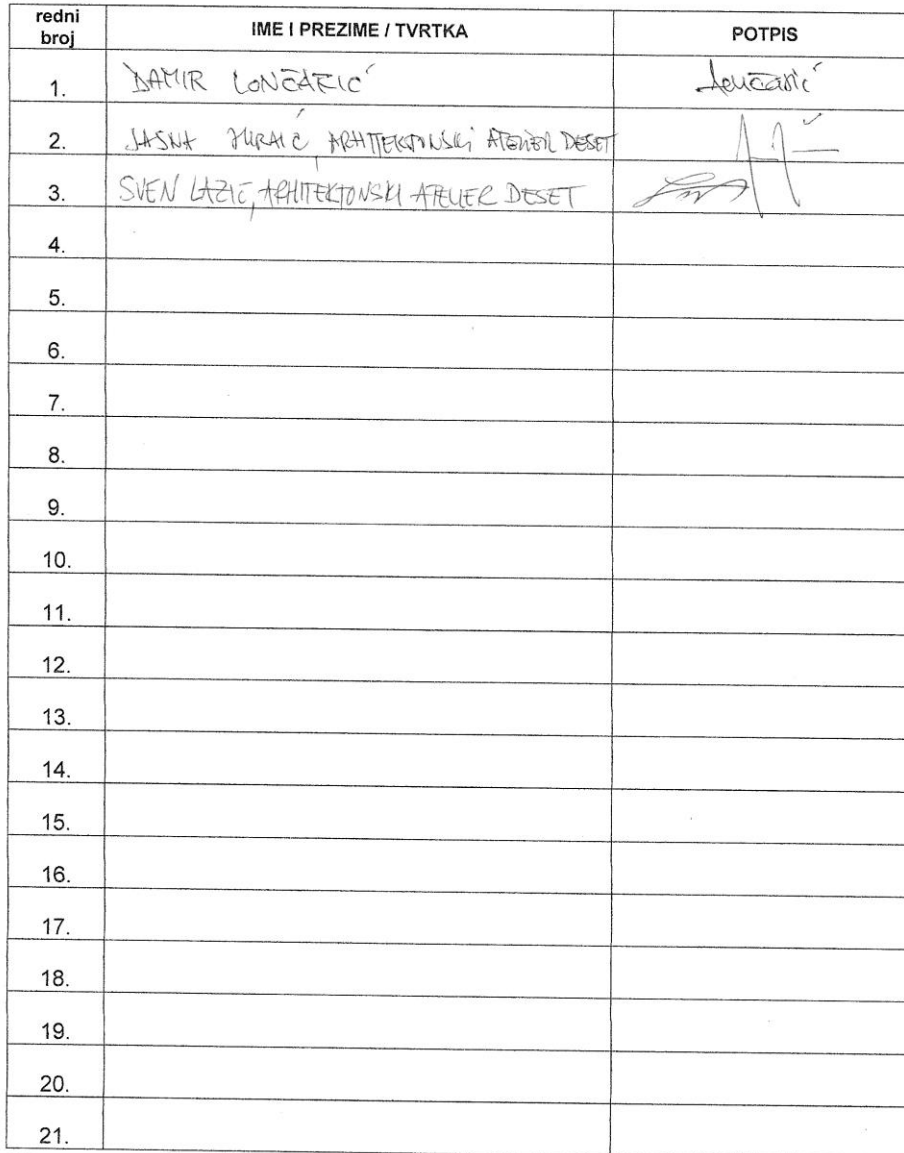 redni broj IME I PREZIME / TVRTKA POTPIS
1. DAMIR LONČARIĆ Lončarić
2. JASNA JURAIĆ, ARHITEKTONSKI ATELIER DESET
3. SVEN LAZIĆ, ARHITEKTONSKI ATELIER DESET
4.
5.
6.
7.
8.
9.
10.
11.
12.
13.
14.
15.
16.
17.
18.
19.
20.
21.